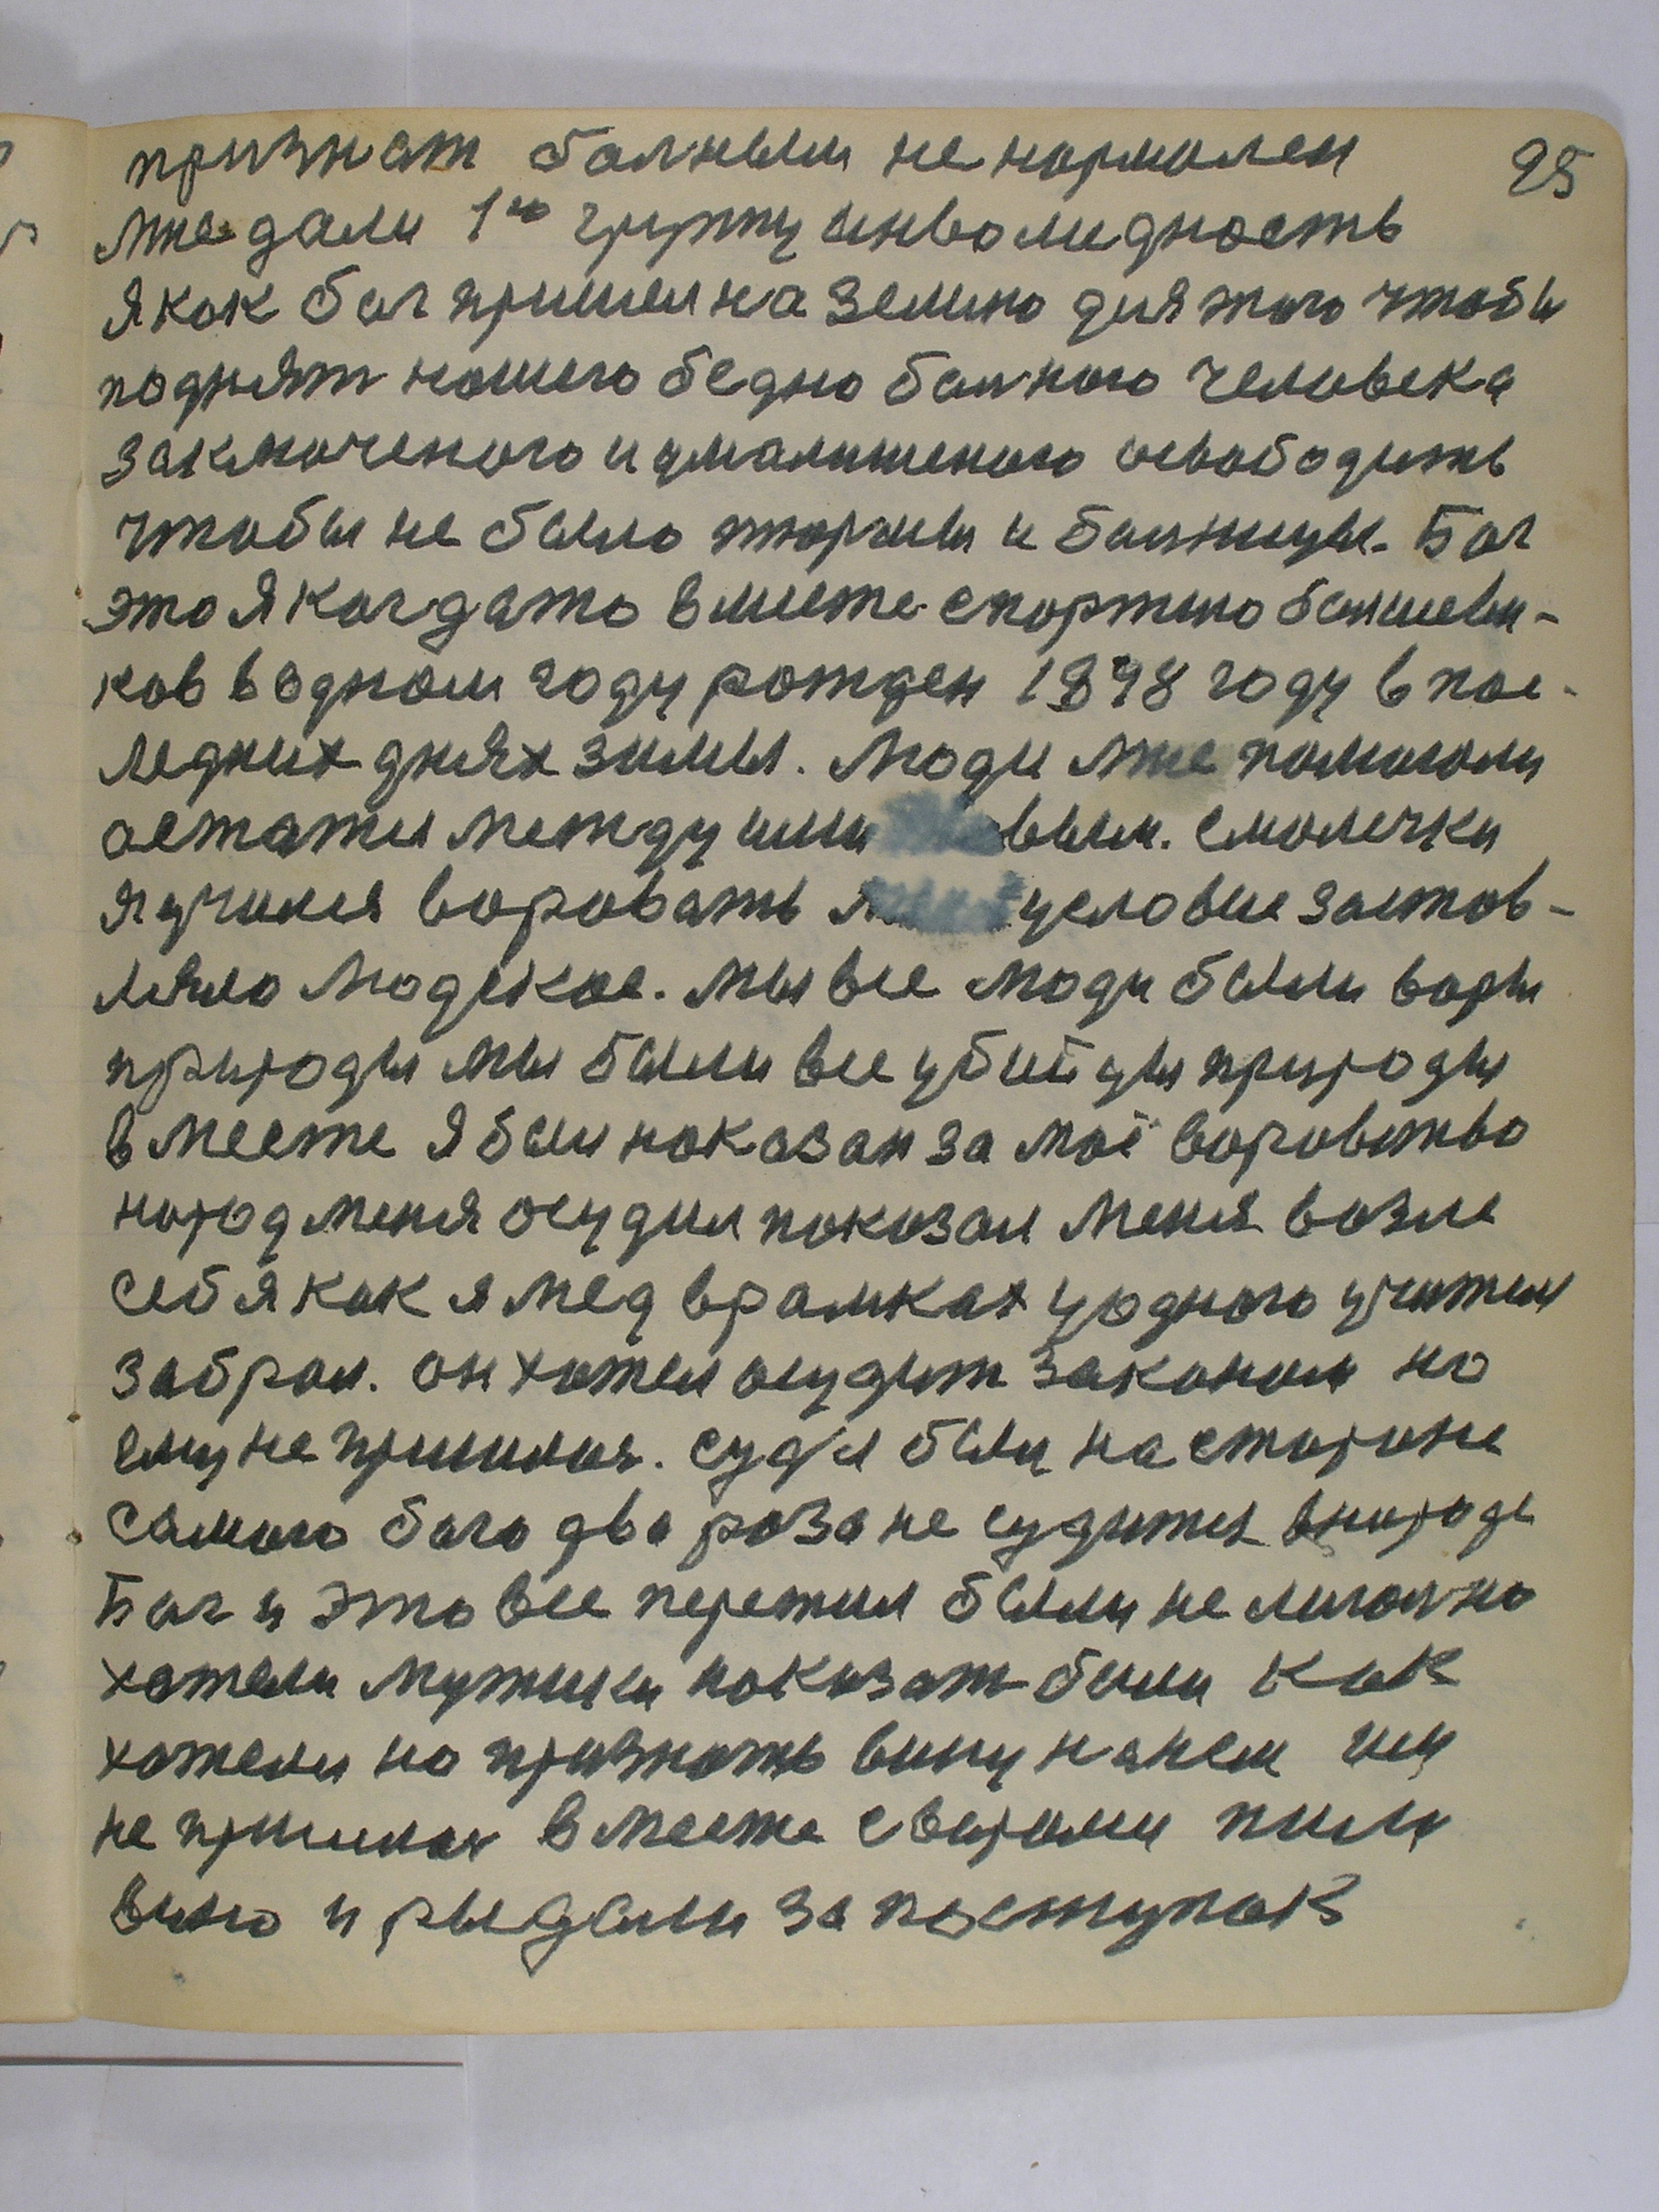 95
признат болным не нормолен
мне дали 1ю групу инволидность
я как бог пришол на землю для того чтобы
поднят нашего бедно болного человека
заключеного и умалишеного освободить
чтобы не было тюрмы и болницы. Бог
это я когдато вместе спортию болшеви-
ков в одном году рожден 1898 году в пос-
ледних днях зимы. Люди мне помоголи
остатся между ими вым. смолечки
я учился воровать условие застов-
ляло людское. мы все люди были воры
природы мы были все убийцы природы
вместе я был наказан за моё воровство
народ меня осудил показал меня возле
себя как я мед врамках уодного учителя
забрал. он хотел осудит законом но
ему не пришлось. судя был на стороне
самого бога два раза не судится внароде
Бог и это все пережил были не лигално
хотели мужики наказат были как
хотели но признать вину нанем им
не пришлось вместе сворами пили
вино и рыдали за поступок